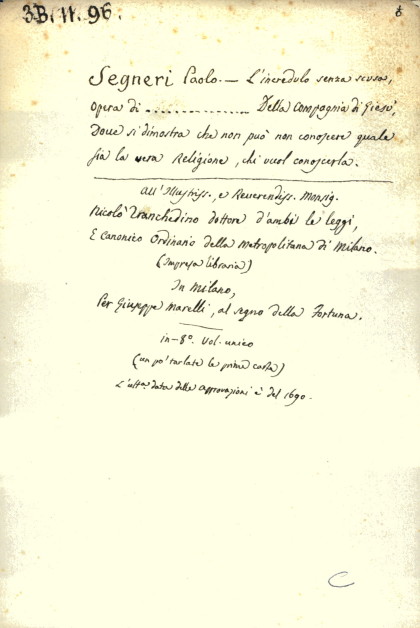 3B. 11. 96.
Segneri Paolo. — L'incredulo senza scusa,
opera di ................ Della Compagnia di Giesù,
Dove si dimostra che non può non conoscere quale
sia la vera Religione, chi vuol conoscerla.
All'Illustriss., e Reverendiss. Monsig.
Nicolò Franchedino dottore d'ambi le leggi,
E Canonico Ordinario della Metropolitana di Milano.
(Impresa libraria)
In Milano,
Per Giuseppe Marelli, al segno della Fortuna.
in-8º. Vol. unico
(un po' tarlate le prime carte)
L'ulta. data delle approvazioni è del 1690.
C